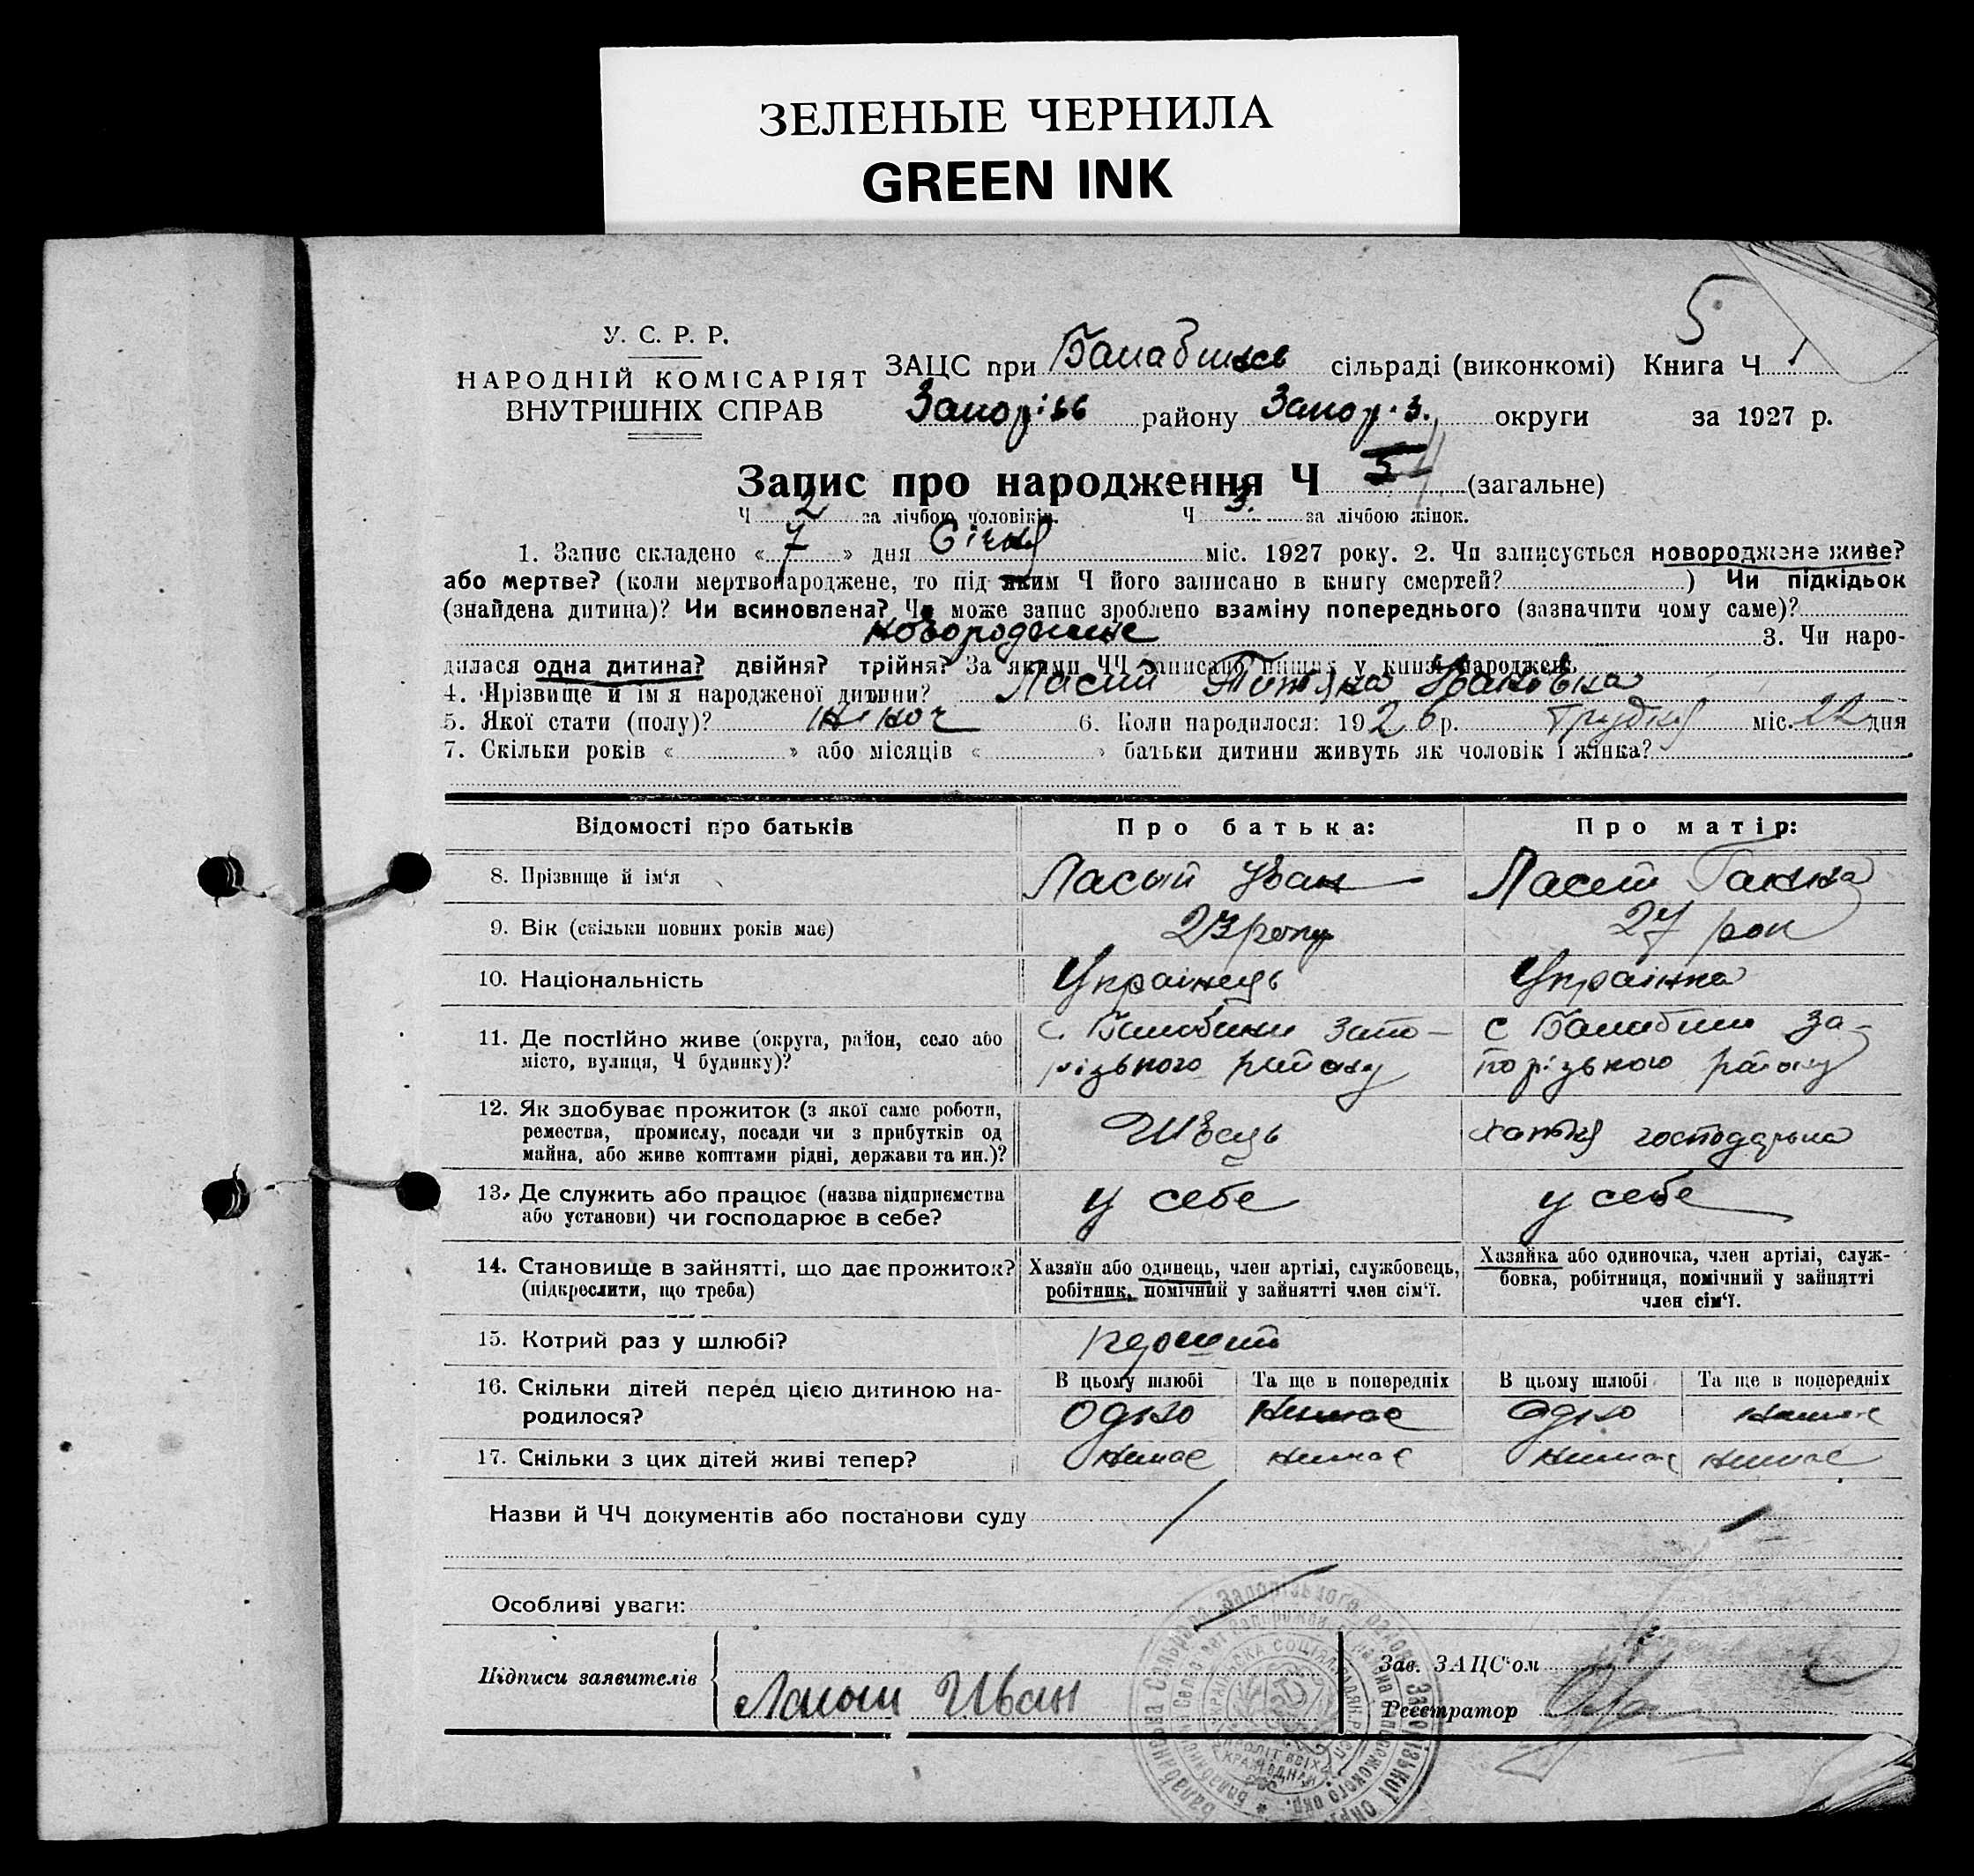 ЗЕЛЕНЫЕ ЧЕРНИЛА
GREEN INK
5
У. С. Р. Р.
НАРОДНІЙ КОМІСАРІЯТ
ВНУТРІШНІХ СПРАВ
ЗАЦС при Балабинсь сільраді (виконкомі) Книга Ч 1
Запорізь району Запор.з. округи за 1927 р.
Запис про народження Ч 5 (загальне)
Ч 2 за лічбою чоловіків. Ч 3. за лічбою жінок.
1. Запис складено « 7 » дня Січня міс. 1927 року. 2. Чи записується новороджене живе?
або мертве? (коли мертвонароджене, то під яким Ч його записано в книгу смертей? ) Чи підкідьок
(знайдена дитина)? Чи всиновлена? Чи може запис зроблено взаміну попереднього (зазначити чому саме)?
новороджене 3. Чи наро-
дилася одна дитина? двійня? трійня? За якими ЧЧ записано инших у книзі народжень
4. Прізвище й імя народженої дитини? Ласий Тетяна Івановна
5. Якої стати (полу)? жіноч 6. Коли народилося: 1926 р. Грудня міс. 22 дня
7. Скільки років « » або місяців « » батьки дитини живуть як чоловік і жінка?
Відомості про батьків Про батька: Про матір:
8. Прізвище й ім‘я Ласий Іван Ласий Ганна
9. Вік (скільки повних років має) 23 року 27 рок
10. Національність Українець Українка
11. Де постійно живе (округа, район, село або с. Балабини Запо- с Балабини За-
місто, вулиця, Ч будинку)? різького району порізького району
12. Як здобуває прожиток (з якої саме роботи,
ремества, промислу, посади чи з прибутків од Швець хатня господарька
майна, або живе коштами рідні, держави та ин.)?
13. Де служить або працює (назва підприємства у себе у себе
або установи) чи господарює в себе?
14. Становище в зайнятті, що дає прожиток? Хазяїн або одинець, член артілі, службовець, Хазяйка або одиночка, член артілі, служ-
(підкреслити, що треба) робітник, помічний у зайнятті член сім‘ї. бовка, робітниця, помічний у зайнятті
член сім‘ї.
15. Котрий раз у шлюбі? перший
16. Скільки дітей перед цією дитиною на- В цьому шлюбі Та ще в попередніх В цьому шлюбі Та ще в попередніх
родилося? Одно немає Одно немає
17. Скільки з цих дітей живі тепер? немає немає немає немає
Назви й ЧЧ документів або постанови суду
Особливі уваги:
Підписи заявителів Ласый Иван
Зав. ЗАЦС‘ом
Реєстратор